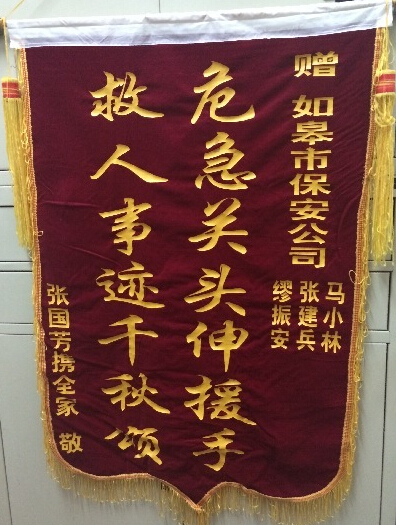 赠 如皋市保安公司
马小林
张建兵
缪振安
危急关头伸援手
救人事迹千秋颂
张国芳携全家 敬